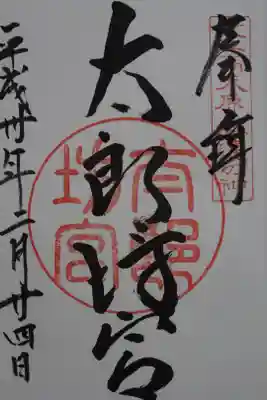 奉拝
太郎坊宮
太郎
坊宮
平成卅年二月廿四日